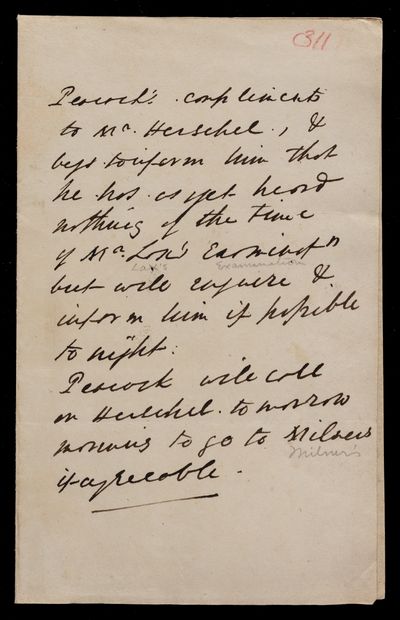 311
Peacock's compliments
to Mr. Herschel, &
begs to inform him that
he has as yet heard
nothing of the time
of Mr. Lax's Examinatn
Lax's Examination
but will enquire &
inform him if possible
to night.
Peacock will call
on Herschel tomorrow
morning to go to Milners
Milner's
if agreeable.